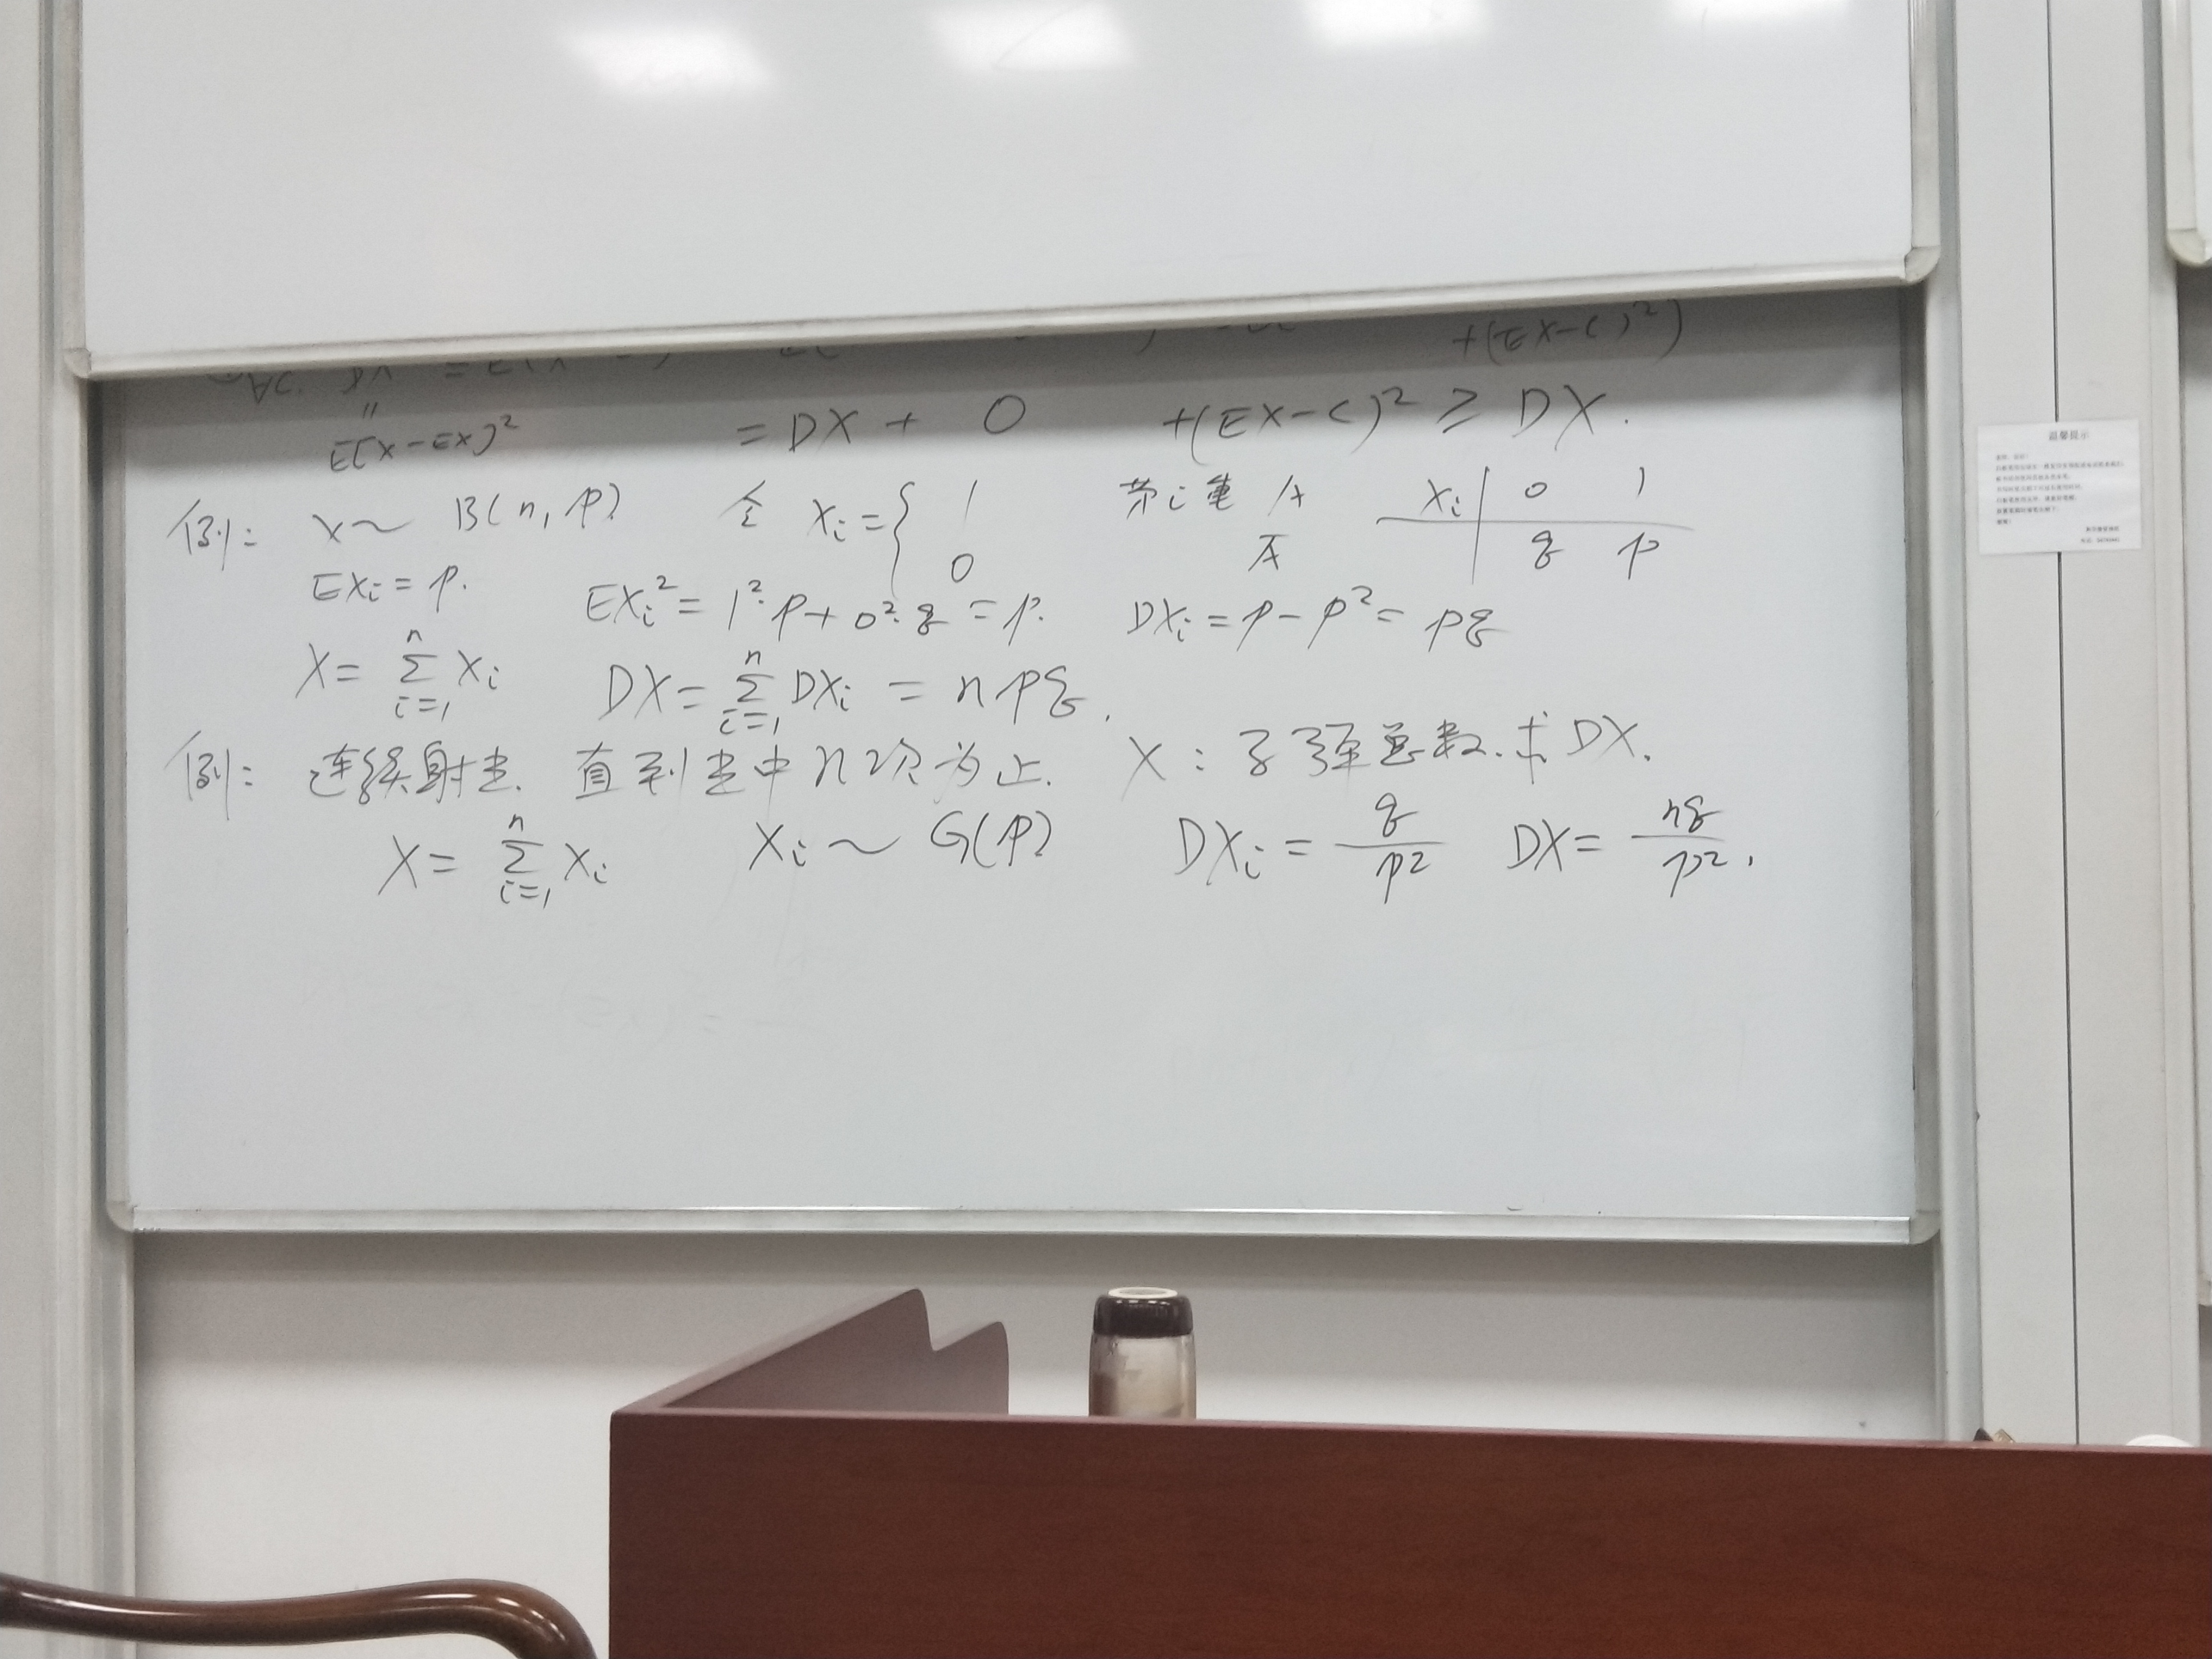 +(EX-C)²)
E(X-EX)²
=DX+ 0 +(EX-C)² ≥ DX.
例: X~ B(n, p) 令 Xi={ 1 第i重 A
0 Ā
Xi | 0 1
q p
EXi=p. EXi²=1²·p+0²·q=p. DXi=p-p²=pq
X=∑ⁿᵢ₌₁Xi DX=∑ⁿᵢ₌₁DXi=npq.
例: 连续射击. 直到击中n次为止. X:子弹总数.求DX.
X=∑ⁿᵢ₌₁Xi Xi~G(p) DXi=q/p² DX=nq/p².
温馨提示